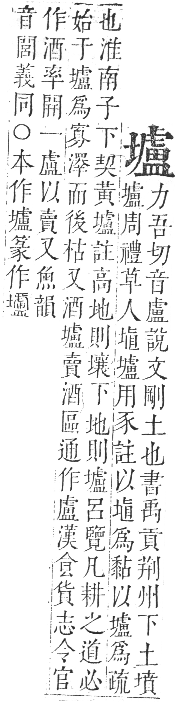 壚
力吾切音盧說文剛土也書禹貢荆州下土墳
壚周禮草人埴壚用豕註以埴爲黏以壚爲疏
也淮南子下契黃壚註高地則壤下地則壚呂覽凡耕之道必
始于壚爲寡澤而後枯又酒壚賣酒區通作盧漢食貨志令官
作酒率開一盧以賣又魚韻
音閭義同○本作壚篆作